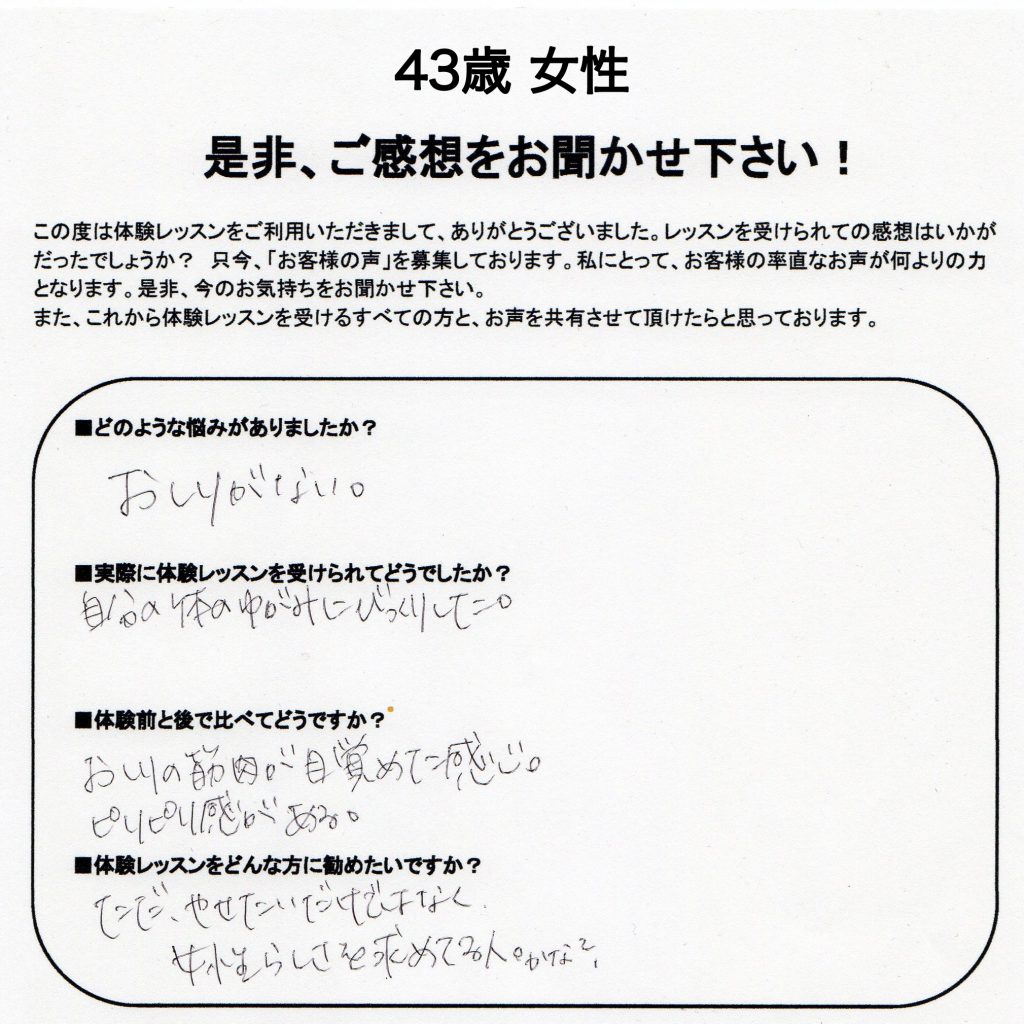 43歳 女性
是非、ご感想をお聞かせ下さい！
この度は体験レッスンをご利用いただきまして、ありがとうございました。レッスンを受けられての感想はいかが
だったでしょうか？ 只今、「お客様の声」を募集しております。私にとって、お客様の率直なお声が何よりの力
となります。是非、今のお気持ちをお聞かせ下さい。
また、これから体験レッスンを受けるすべての方と、お声を共有させて頂けたらと思っております。
■どのような悩みがありましたか？
おしりがない。
■実際に体験レッスンを受けられてどうでしたか？
自分の体のゆがみにびっくりした。
■体験前と後で比べてどうですか？
おしりの筋肉が目覚めた感じ。
ピリピリ感がある。
■体験レッスンをどんな方に勧めたいですか？
ただ、やせたいだけではなく、
女性らしさを求めてる人。かな？